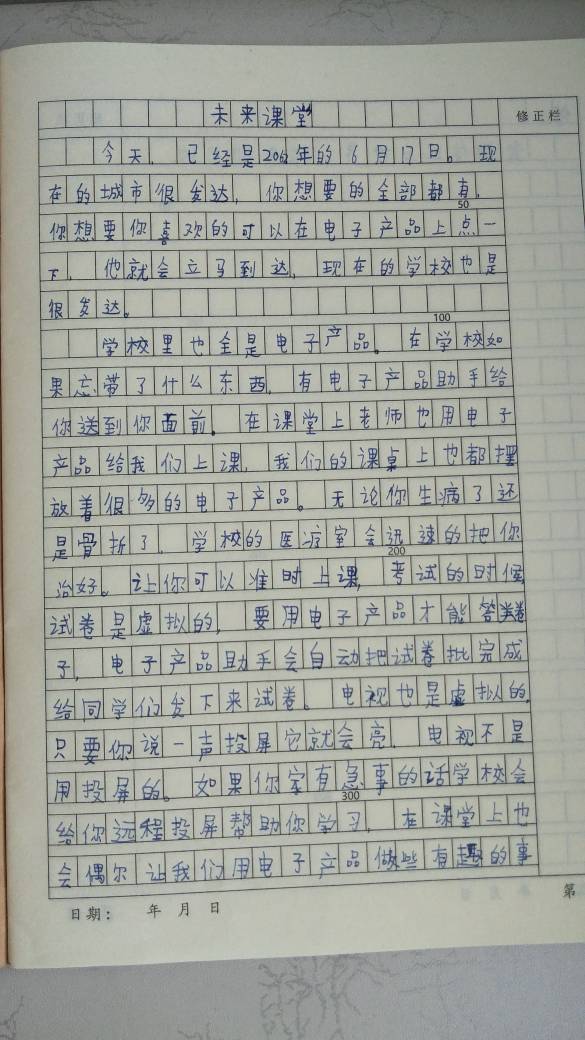 未来课堂
修正栏
今天,已经是2062年的6月17日。现
在的城市很发达,你想要的全部都有,
50
你想要你喜欢的可以在电子产品上点一
下,他就会立马到达,现在的学校也是
很发达。
100
学校里也全是电子产品。在学校如
果忘带了什么东西,有电子产品助手给
你送到你面前。在课堂上老师也用电子
产品给我们上课,我们的课桌上也都摆
放着很多的电子产品。无论你生病了还
是骨折了,学校的医疗室会迅速的把你
200
治好。让你可以准时上课,考试的时候
试卷是虚拟的,要用电子产品才能答卷
子,电子产品助手会自动把试卷批完成
给同学们发下来试卷。电视也是虚拟的,
只要你说一声投屏它就会亮,电视不是
用投屏的。如果你家有急事的话学校会
300
给你远程投屏帮助你学习,在课堂上也
会偶尔让我们用电子产品做些有趣的事
日期: 年 月 日
第